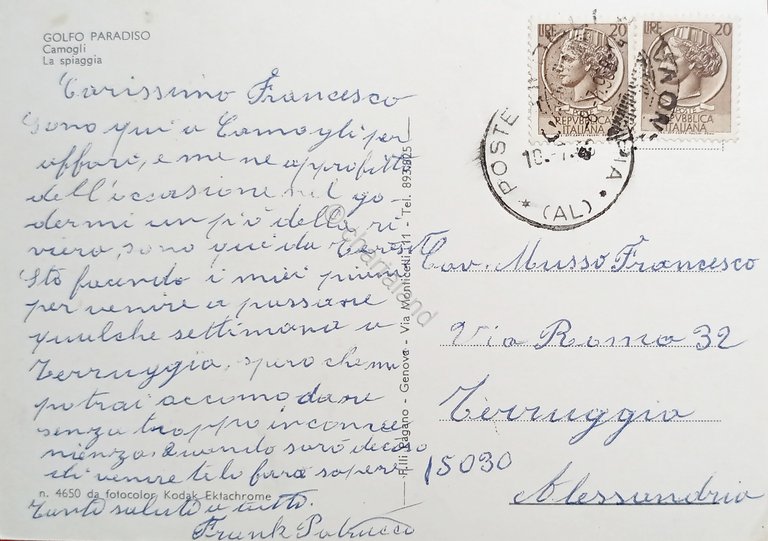 GOLFO PARADISO
Camogli
La spiaggia
Carissimo Francesco
Sono qui a Camogli per
affari, e me ne approfitto
dell'occasione nel go-
dermi un pò della ri
viera, sono qui da
Sto facendo i miei piani
per venire a passare
qualche settimana a
Terruggia, spero che mi
potrai accomodare
senza troppo inconve
nienza. Quando sarò deciso
di venire te lo farò sapere
Tanti saluti a tutti.
Frank Patrucco
n. 4650 da fotocolor Kodak Ektachrome
F.lli Pagano - Genova - Via Monticelli 11 - Tel. 893.825
LIRE 20
POSTE
REPVBBLICA
ITALIANA
LIRE 20
POSTE
REPVBBLICA
ITALIANA
POSTE
(AL)
Cav. Musso Francesco
Via Roma 32
Terruggia
15030
Alessandria
© chartaland